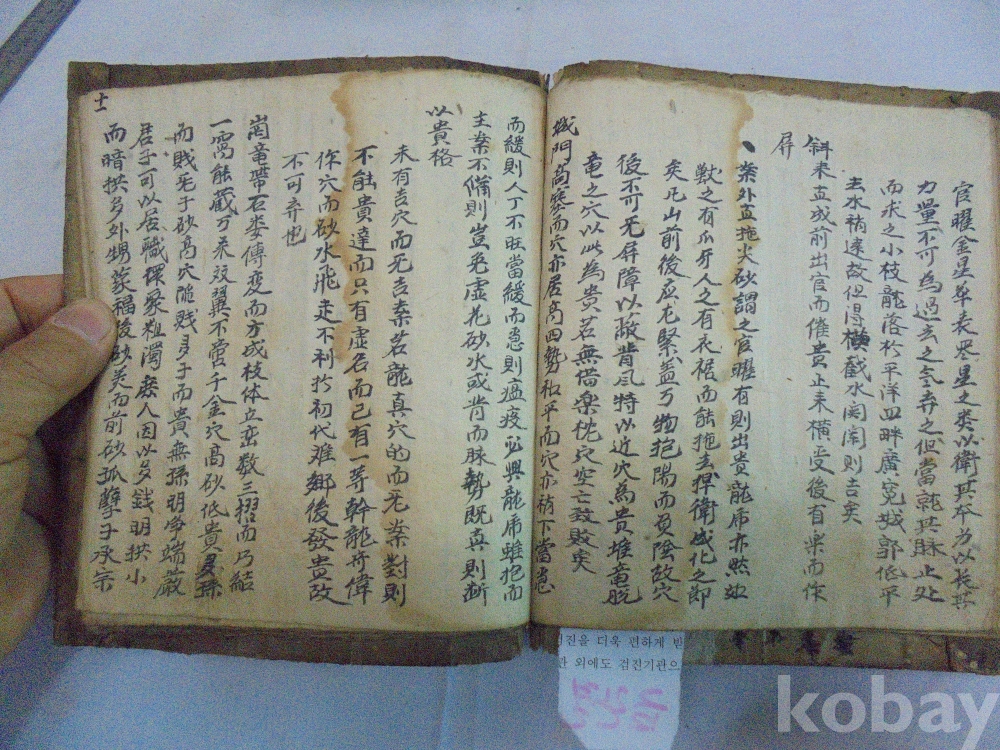 官曜金星草表墨星之類以衛其本方以長其
力量不可為過去之乞弃之但當乾其脉止处
而求之小枝龍落於平洋四畔廣寬城郭低平
去水禍遠故但得橫截水関闌則吉矣
斜来直成前出官而催貴止来横受後有樂而作
屏
案外直拖尖砂謂之官曜有則出貴龍席亦然如
獸之有爪牙人之有衣裾而能拖去捍衛威化之即
矣凡山前後应无緊盖万物抱陽而負陰故穴
後不可无屏障以敵背風特以近穴為貴堆竜脱
竜之穴以此為貴若無借樂枕穴空亡致敗矣
城門高寒而穴亦居高四勢和平而穴亦稍下當急
而緩則人丁不旺當緩而急則瘟疫必興龍席雖抱而
主案不備則豈免虚花砂水或背而脉勢既真則断
以貴格
未有吉穴而无吉案若龍真穴的而无案對則
不能貴達而只有虚名而已有一等幹龍奇偉
作穴而砂水飛走不利於初代难鄉後發貴故
不可弃也
崗竜帶石娄傳变而方成枝体立峦数三摺而乃結
一窩能藏万来双翼不啻千金穴高砂低貴多孫
而賤无子砂高穴随賤多子而貴無孫明争端嚴
君子可以居職環象粗濁癸人因以多錢明拱小
而暗拱多外甥蒙福後砂美而前砂孤孽子承宗
十二
검진을 더욱 편하게 받
관 외에도 검진기관으
kobay